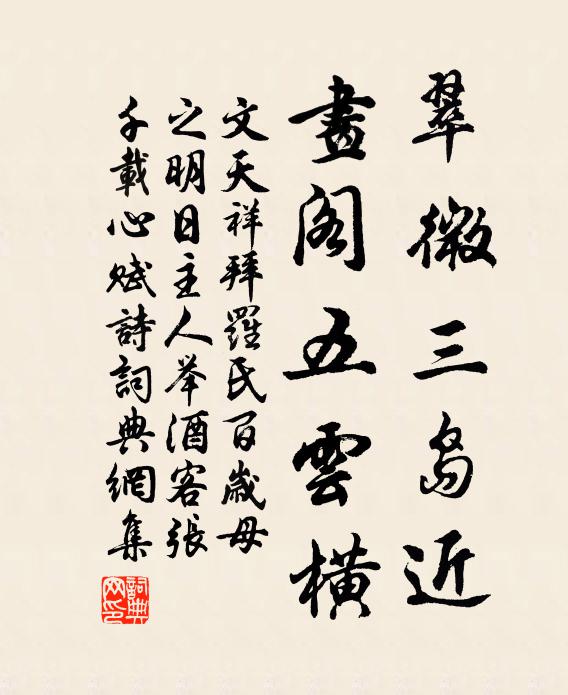 翠微三島近
畫阁五雲橫
文天祥拜羅氏百歲母
之明日主人举酒客張
千載心賦詩詞典網集
詞典
网印